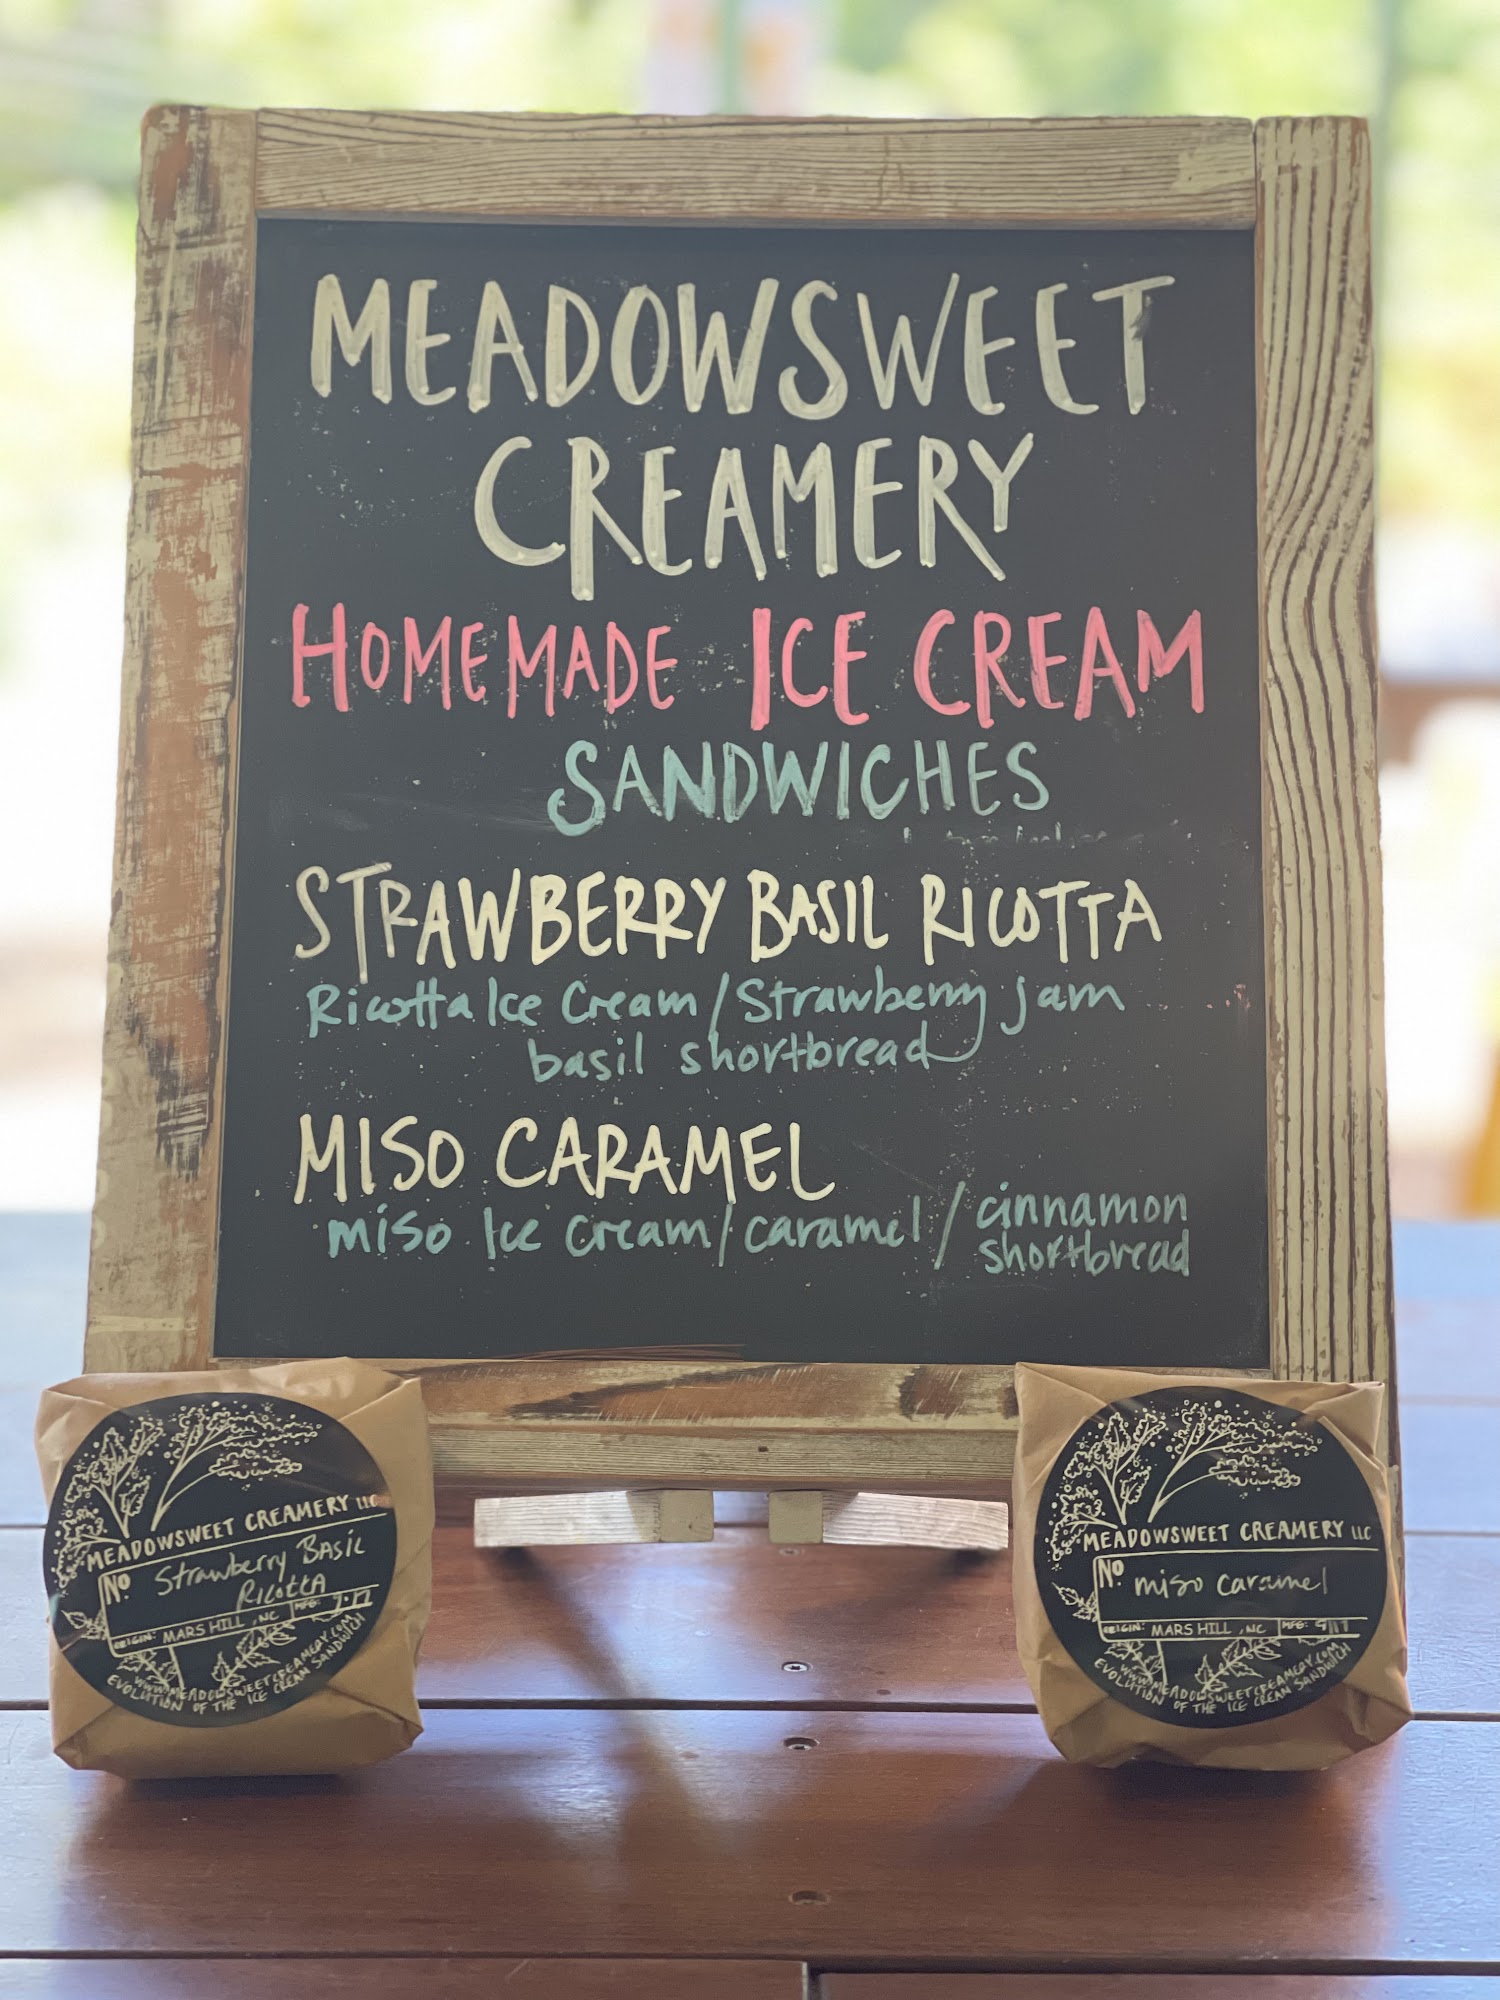 MEADOWSWEET
CREAMERY
HOMEMADE ICE CREAM
SANDWICHES
STRAWBERRY BASIL RICOTTA
Ricotta Ice Cream / Strawberry jam
basil shortbread
MISO CARAMEL
miso Ice Cream / caramel / cinnamon
shortbread
MEADOWSWEET CREAMERY LLC
NO. Strawberry BASIL
RICOTTA
ORIGIN: MARS HILL, NC MFG:
WWW.MEADOWSWEETCREAMERY.COM
EVOLUTION OF THE ICE CREAM SANDWICH
MEADOWSWEET CREAMERY LLC
NO. miso caramel
ORIGIN: MARS HILL, NC MFG: 9/17
WWW.MEADOWSWEETCREAMERY.COM
EVOLUTION OF THE ICE CREAM SANDWICH